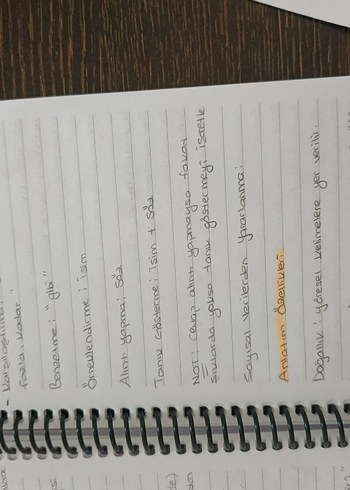 - Karşılaştırma:
fazla, kadar"
Benzetme: "gibi"
Örneklendirme: isim
Alıntı yapma: söz
Tanık Gösterme: isim + söz
NOT: Cevap alıntı yapmaysa fakat
şıklarda yoksa tanık göstermeyi işaretle
Sayısal Verilerden Yararlanma:
Anlatım Özellikleri
Doğallık: yöresel kelimelere yer verilir.